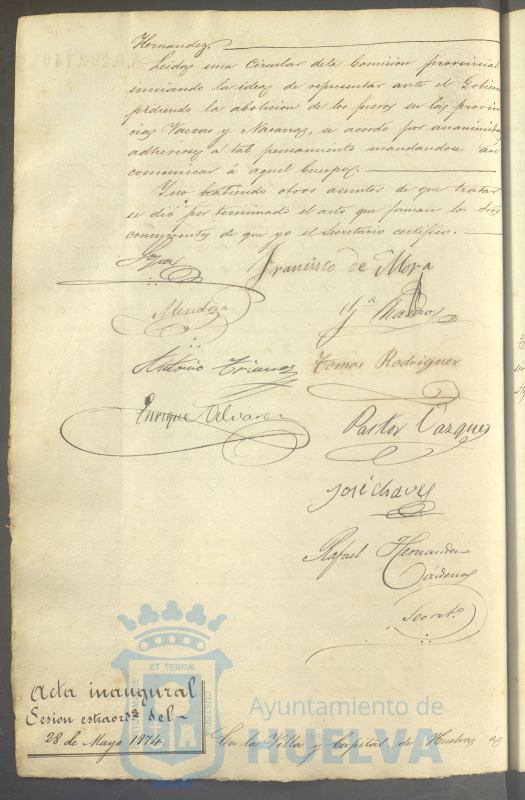 Hernandez.
Leidas una Circular de la Comision provincial
iniciando la idea de representar ante el Gobierno
pidiendo la abolicion de los fueros en las provin
cias Vascas y Navarras, se acordó por unanimidad
adherirse a tal pensamiento mandandose asi
comunicar á aquel Cuerpo.
Y no habiendo otros asuntos de que tratar
se dió por terminado el acto que firman los Sres
concurrentes de que yo el Secretario certifico.
Francisco de Mora
Mendoza
Antonio Trianos
Tomas Rodriguez
Enrique Alvarez
Pastor Vazquez
José Chaves
Rafael Hernandez
Cárdenas
Secret.º
ET TERRÆ
Acta inaugural
Sesion estraord.ª del
28 de Mayo 1874
En la Villa y Capital de Huelva á
Ayuntamiento de
HUELVA